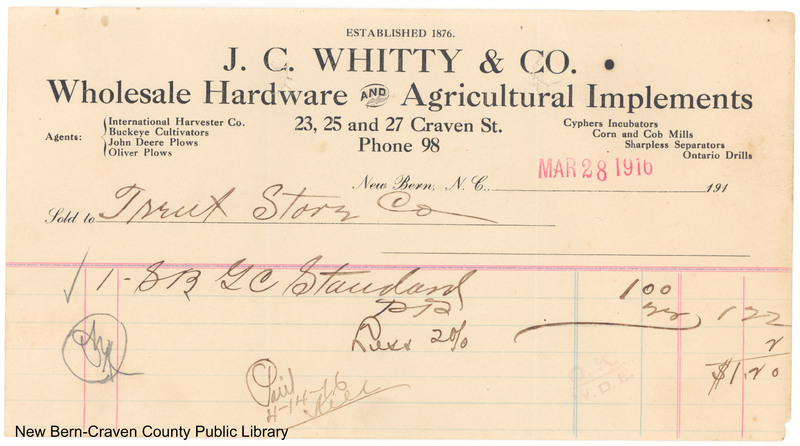 ESTABLISHED 1876.
J. C. WHITTY & CO.
Wholesale Hardware AND Agricultural Implements
Agents:
International Harvester Co.
Buckeye Cultivators
John Deere Plows
Oliver Plows
23, 25 and 27 Craven St.
Phone 98
Cyphers Incubators
Corn and Cob Mills
Sharpless Separators
Ontario Drills
New Bern, N. C., MAR 28 1916 191
Sold to Truit Story Co
1 - S B GC Standard 1 00
PP 22 1 22
Less 2% 2
$1.20
Paid
4-14-16
O.K.
W.D.L.
New Bern-Craven County Public Library